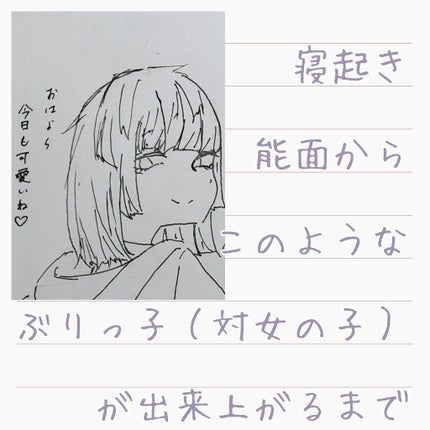 おはよう
今日も可愛いね♡
寝起き
能面から
このような
ぶりっ子(対女の子)
が出来上がるまで